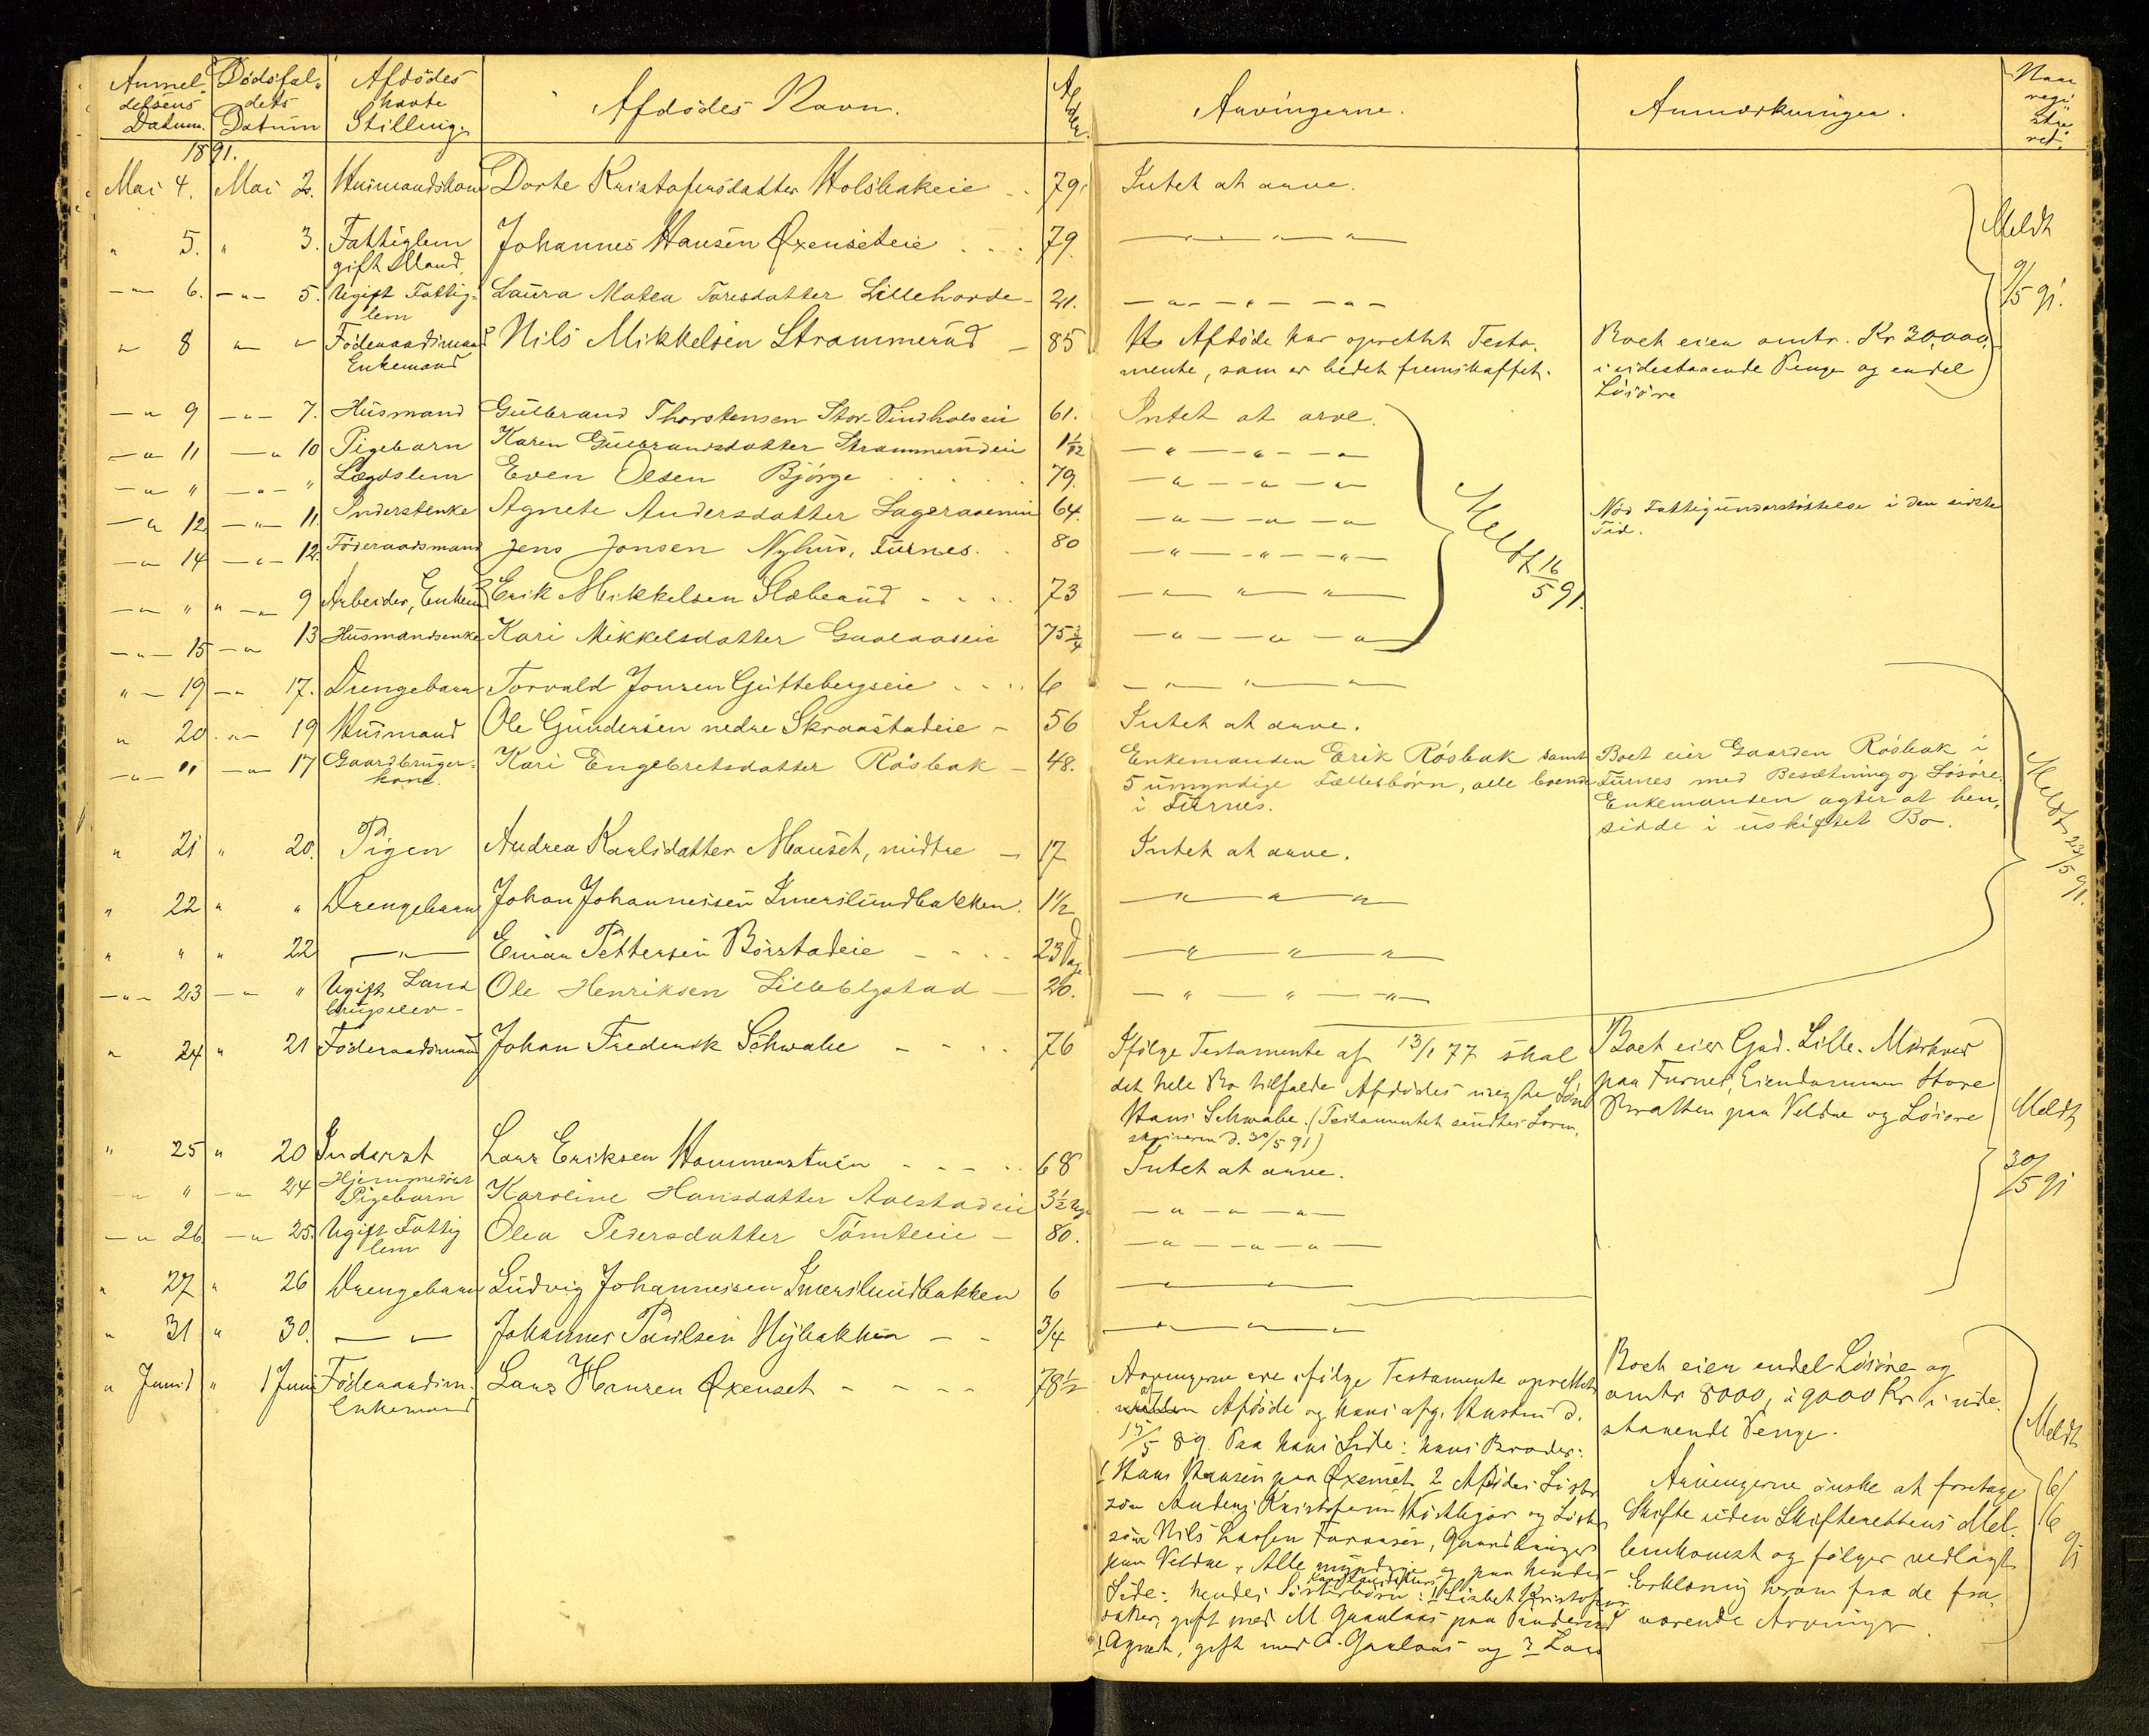 Anmel- Dødsfal- Afdødes
delsens dets havte Afdødes Navn. Alder. Arvingerne. Anmærkninger. Naar regi- stre- ret.
Datum. Datum Stilling.
1891.
Mai 4. Mai 2. Husmandskone Dorte Kristofersdatter Holsbakeie 79. Intet at arve.
" 5. " 3. Fattiglem Johannes Hansen Øxenseteie 79. — " — " — " — Meldt
gift Mand.
— " — 6. — " — 5. Ugift Fattig- Laura Matea Toresdatter Lillehovde 21. — " — " — " — 9/5 91.
lem
" 8 " " Føderaadsmand Nils Mikkelsen Strammerud 85 Afdøde har oprettet Testa- Boet eier omtr. Kr 30,000,
Enkemand mente, som er bedet fremskaffet. i udestaaende Penge og endel
Løsøre
— " 9 — " — 7. Husmand Gulbrand Thorstensen Stor- 61. Intet at arve.
— " 11 — " 10 Pigebarn Karen Gulbrandsdatter Strammerudeie 1 1/12 — " — " — " —
— " " — " — " Lægdslem Even Olsen Bjørge 79. — " — " — " —
— " 12 — " — 11. Inderstenke Agnete Andersdatter 64. — " — " — " — Nød Fattigunderstøttelse i den sidste
Tid.
— " 14 — " — 12. Føderaadsmand Jens Jonsen Nyhus, Furnes. 80 — " — " — " — Meldt 16/5 91.
— " " " — " 9 Arbeider, Enkem. Erik Mikkelsen 73 — " — " — " —
— " — 15 — " 13 Husmandsenke Kari Mikkelsdatter Gaalaaseie 75 3/4 — " — " — " —
" — 19 — " 17. Drengebarn Torvald Jonsen Guttebergseie 6 — " — " —
" 20. " — 19 Husmand Ole Gundersen nedre Skraastadeie 56 Intet at arve.
— " — " — " — 17 Gaardbruger- Kari Engebretsdatter Røsbak 48. Enkemanden Erik Røsbak samt Boet eier Gaarden Røsbak i
kone. 5 umyndige Fællesbørn, alle boende Furnes med Besætning og Løsøre.
i Furnes. Enkemanden agter at hen-
sidde i uskiftet Bo.
" 21 " 20. Pigen Andrea Karlsdatter Mauset, midtre 17 Intet at arve. Meldt 23/5 91.
" 22 " " Drengebarn Johan Johannessen Imerslundbakken. 1 1/2 — " — " — " —
" " " 22 — " — Einar Pettersen Børstadeie 23 Dage — " — " — " —
— " — 23 — " " Ugift Land Ole Henriksen Lilleblystad 26. — " — " — " —
brugselev
" 24 " 21 Føderaadsmand Johan Frederik Schwabe 76 Ifølge Testamente af 13/1 77 skal Boet eier Grd. Lille- Mørkved
det hele Bo tilfalde Afdødes uægte Søn paa Furnes, Eiendommen Store
Hans Schwabe. (Testamentet sendtes Soren- Bratten paa Veldre og Løsøre Meldt
skriveren d. 30/5 91)
" 25 " 20 Inderst Lars Eriksen Hammerstuen 68 Intet at arve. 30/5 91
— " " — " 24 Hjemmedøbt
Pigebarn Karoline Hansdatter Aalstadeie 3 1/2 Uge — " — " — " —
— " 26. — " 25. Ugift Fattig Olea Pedersdatter Tomteeie 80. — " — " — " —
lem
" 27 " 26 Drengebarn Ludvig Johannessen Imerslundbakken 6 — " — " —
" 31 " 30. — " — Johannes Paulsen Nybakken 3/4 — " — " —
" Juni 1 " 1 Juni Føderaadsm. Lars Hansen Øxenset 78 1/2 Arvingerne ere ifølge Testamente oprettet Boet eier endel Løsøre og
Enkemand Afdøde og hans afg. Hustru d. omtr 8000, à 9000 Kr i ude-
15/5 89. Paa hans Side: hans Broder: staaende Penge.
1 Hans Hansen paa Øxenset 2 Afdødes Søster Arvingerne ønske at foretage Meldt
søn Anders Kristofersen og Søster Skifte uden Skifterettens Mel- 6/6 91
søn Nils Larsen Faraasen, Gaardbruger lemkomst og følger vedlagt
paa Veldre. Alle myndige og paa hendes Erklæring herom fra de fra-
Side: hendes Søsterbørn: 1 Lisbet Kristofers- værende Arvinger.
datter, gift med M. Gaalaas paa
Agnet, gift med A. Gaalaas og 3 Lars